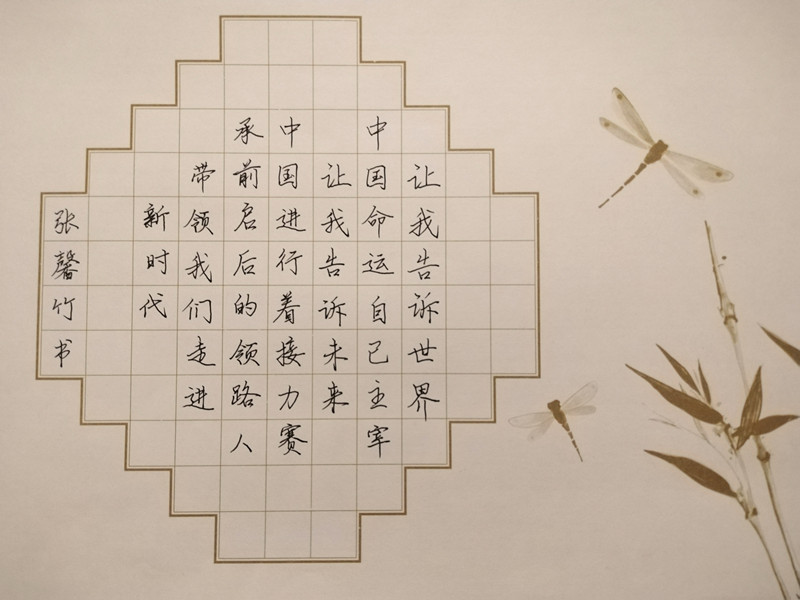 让我告诉世界
中国命运自己主宰
让我告诉未来
中国进行着接力赛
承前启后的领路人
带领我们走进
新时代
张馨竹书